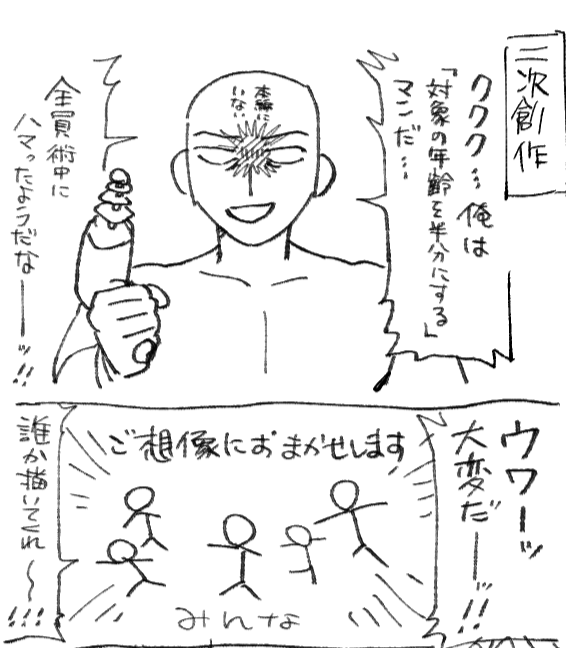 二次創作
ククク…俺は
「対象の年齢を半分にする」
マンだ…
本編に
いない
全員術中に
ハマったようだなーーッ!!
ウワーッ
大変だーーッ!!
ご想像におまかせします
みんな
誰か描いてくれ〜〜!!!